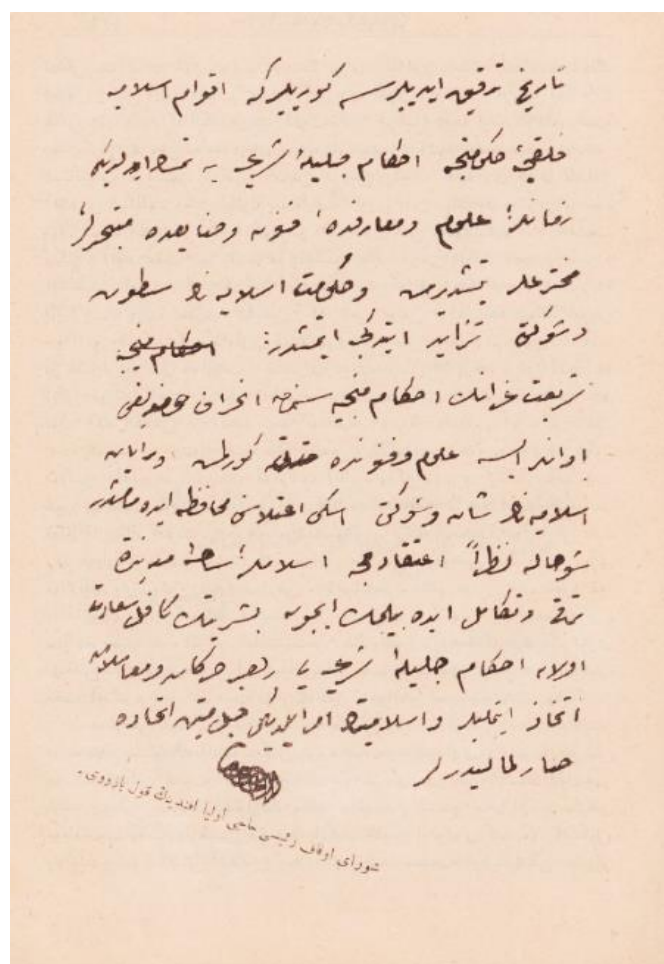 تاریخ تدقیق ایدیلیرسه کوریلیرکه اقوام اسلامیه
احکام جلیلهٔ شرعیه یه تمسك ایتدکلری
زمانلر علوم ومعارفده فنون وصنایعده متبحرلر
مخترعلر یتشدیرمش وحکومت اسلامیه نك سطوت
وشوکتی تزاید ایتدکجه ایتمشدر: احکام منجیه
شریعت غرانك احکام منجیه سندن انحراف
علوم وفنونده کورلمش
اسلامیه نك شان وشوکتی اسکی اعتلاسنی محافظه ایده مامشدر
شو حاله نظراً اعتقادمجه اسلاملر ساحهٔ مدنیتده
ترقی وتکامل ایده بیلمك ایچون بشریتك کافل سعادتی
اولان احکام جلیلهٔ شرعیه یی رهبر حرکات ومعاملات
اتخاذ ایتملیلر واسلامیتك امر ایلدیکی حبل متین اتحاده
صارلمالیدرلر
شورای اوقاف رئیسی حاجی اولیا افندینك قول یازووی .